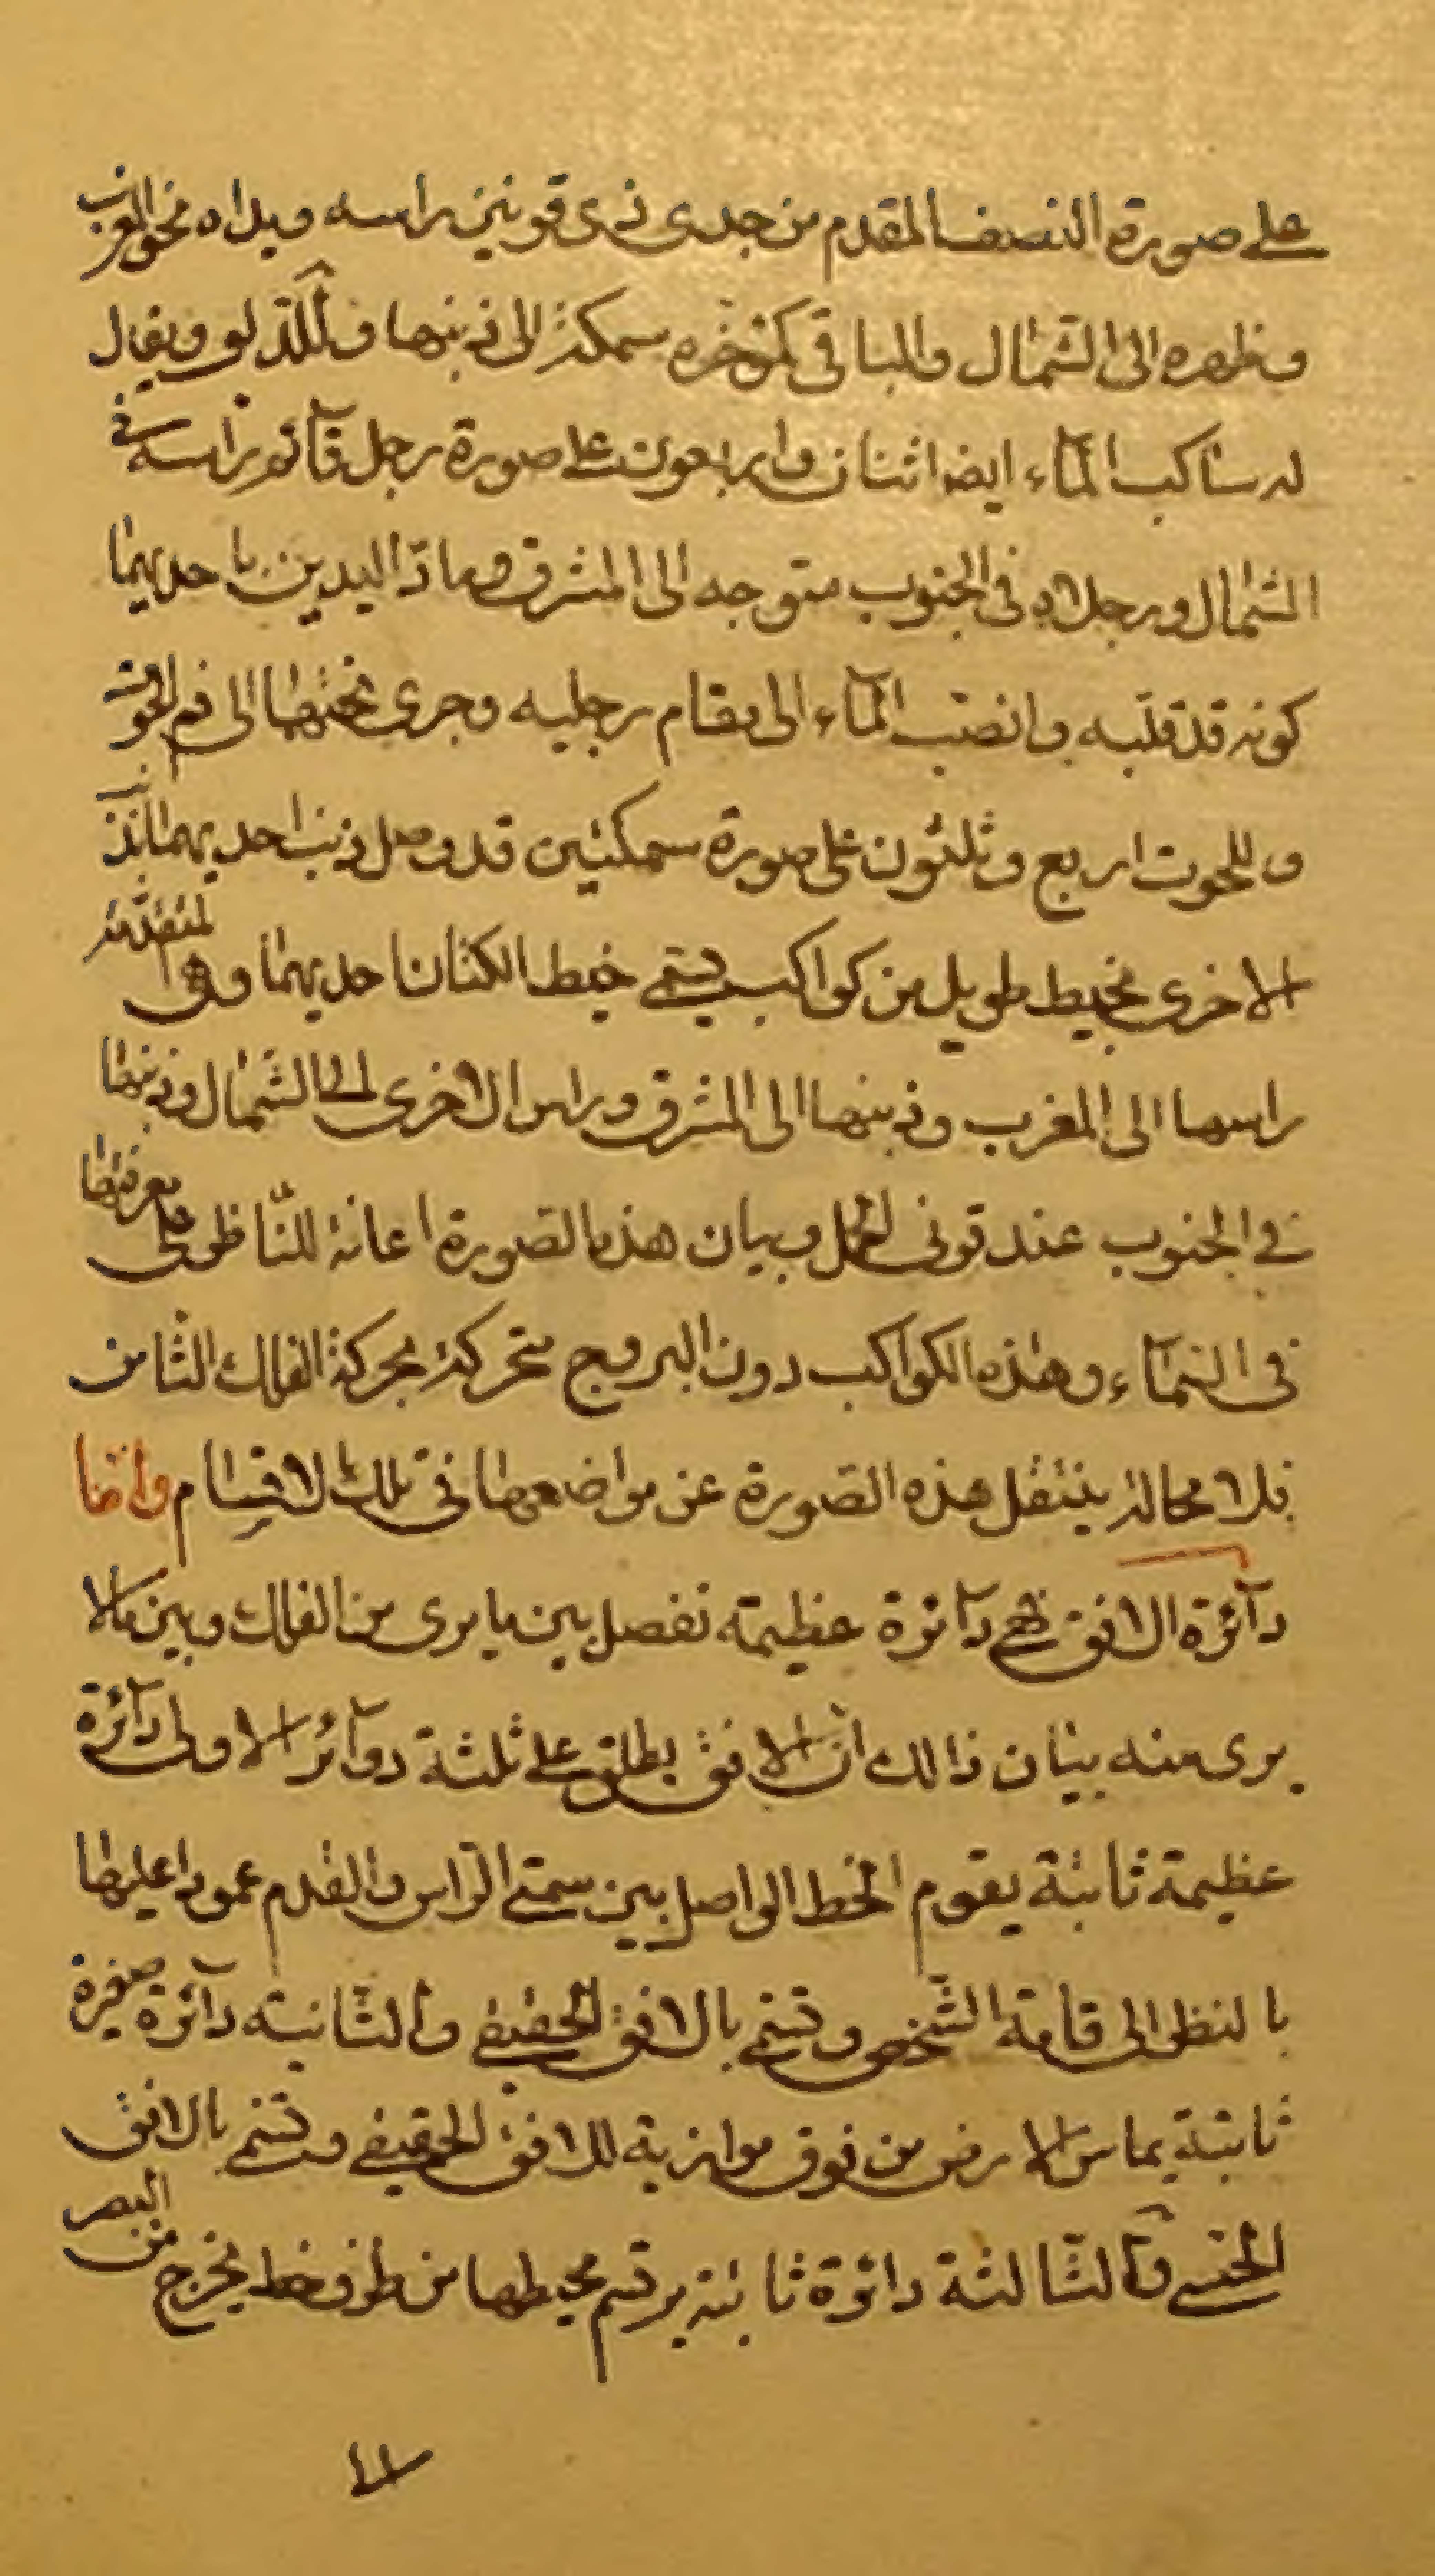 على صورة النصف المقدم من جدى ذى قرنين راسه ويداه نحو المغرب
وظهره الى الشمال والباقى كمؤخره سمكة الى ذنبها وللدلو ويقال
له ساكب المآء ايضا اثنان واربعون على صورة رجل قآئم راسه فى
الشمال ورجلاه فى الجنوب متوجه الى المشرق وماد اليدين باحديهما
كوز قد قلبه وانصب المآء الى مقام رجليه وجرى تحتها الى فم الحوت
وللحوت اربع وثلثون على صورة سمكتين قد وصل ذنب احديهما بذنب
الاخرى بخيط طويل من كواكب يسمى خيط الكتان احديهما وهى المتقدمة
راسها الى المغرب وذنبها الى المشرق وراس الاخرى الى الشمال وذنبها
فى الجنوب عند قرنى الحمل وبيان هذه الصورة اعانة للناظر على معرفتها
فى السمآء وهذه الكواكب دون البروج متحركة بحركة الفلك الثامن
فلا محالة ينتقل هذه الصورة عن مواضعها فى تلك الاقسام وامّا
دآئرة الافق فهى دآئرة عظيمة تفصل بين ما يرى من الفلك وبين ما لا
يرى منه بيان ذالك انّ الافق يطلق على ثلثة دوآئر الاولى دآئرة
عظيمة ثابتة يقوم الخط الواصل بين سمتى الرّاس والقدم عمودا عليها
بالنظر الى قامة الشّخص وتسمى بالافق الحقيقى والثّانية دآئرة صغيرة
ثابتة يماس الارض من فوق موازية للافق الحقيقى وتسمى بالافق
الحسى والثّالثة دائرة ثابتة يرتسم محيطها من طرف خط يخرج من البصر